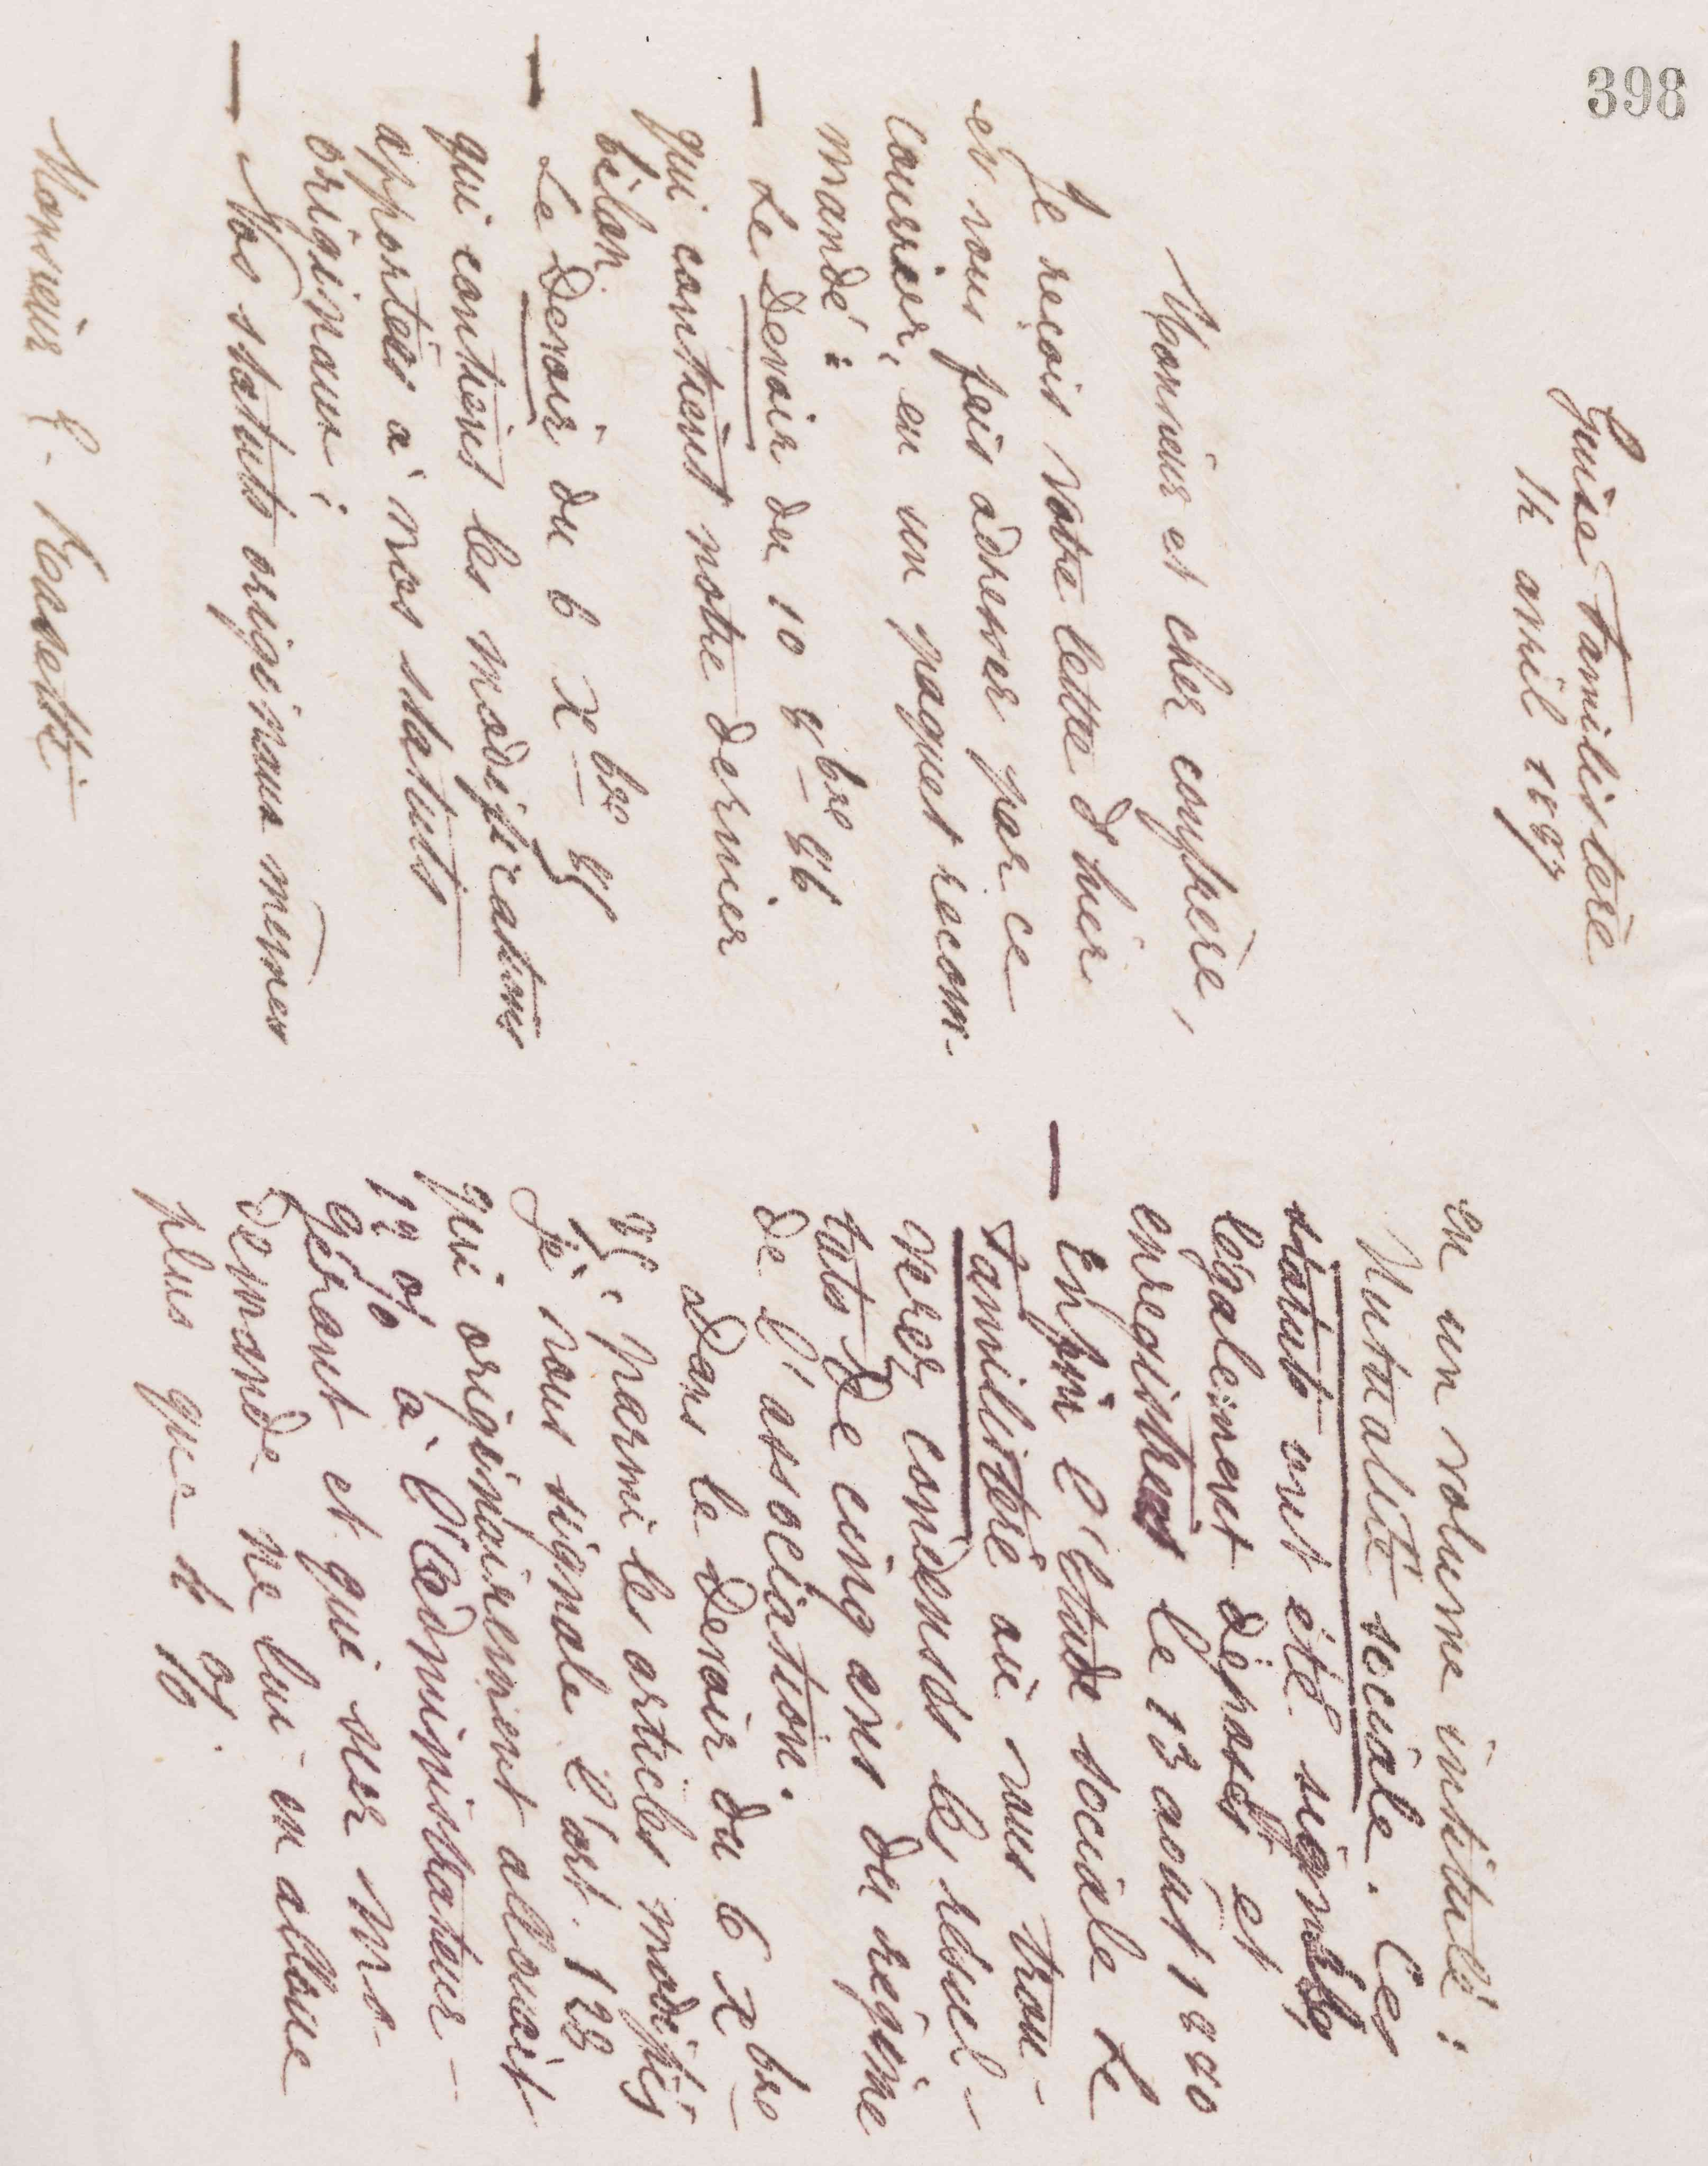 398
Guise Familistère
14 avril 1887
Monsieur et cher confrère,
Je reçois votre lettre d'hier
et vous fais adresser par ce
courrier, en un paquet recom-
mandé :
— Le Devoir du 10 8bre 86
qui contient notre dernier
bilan
— Le Devoir du 6 Xbre 85
qui contient les modifications
apportées à nos statuts
originaux ;
— Nos statuts originaux mêmes
Monsieur E.
en un volume intitulé :
Mutualité sociale. Ces
statuts ont été signés,
légalement déposés et
enregistrés le 13 août 1880
— Enfin l'Etude sociale Le
Familistère où vous trou-
verez condensés les résul-
tats de cinq ans du régime
de l'association.
Dans le Devoir du 6 Xbre
85, parmi les articles modifiés
je vous signale l'art. 128
qui originairement allouait
12 % à l'Administrateur-
Gérant et qui sur sa
demande ne lui en alloue
plus que 4 %.